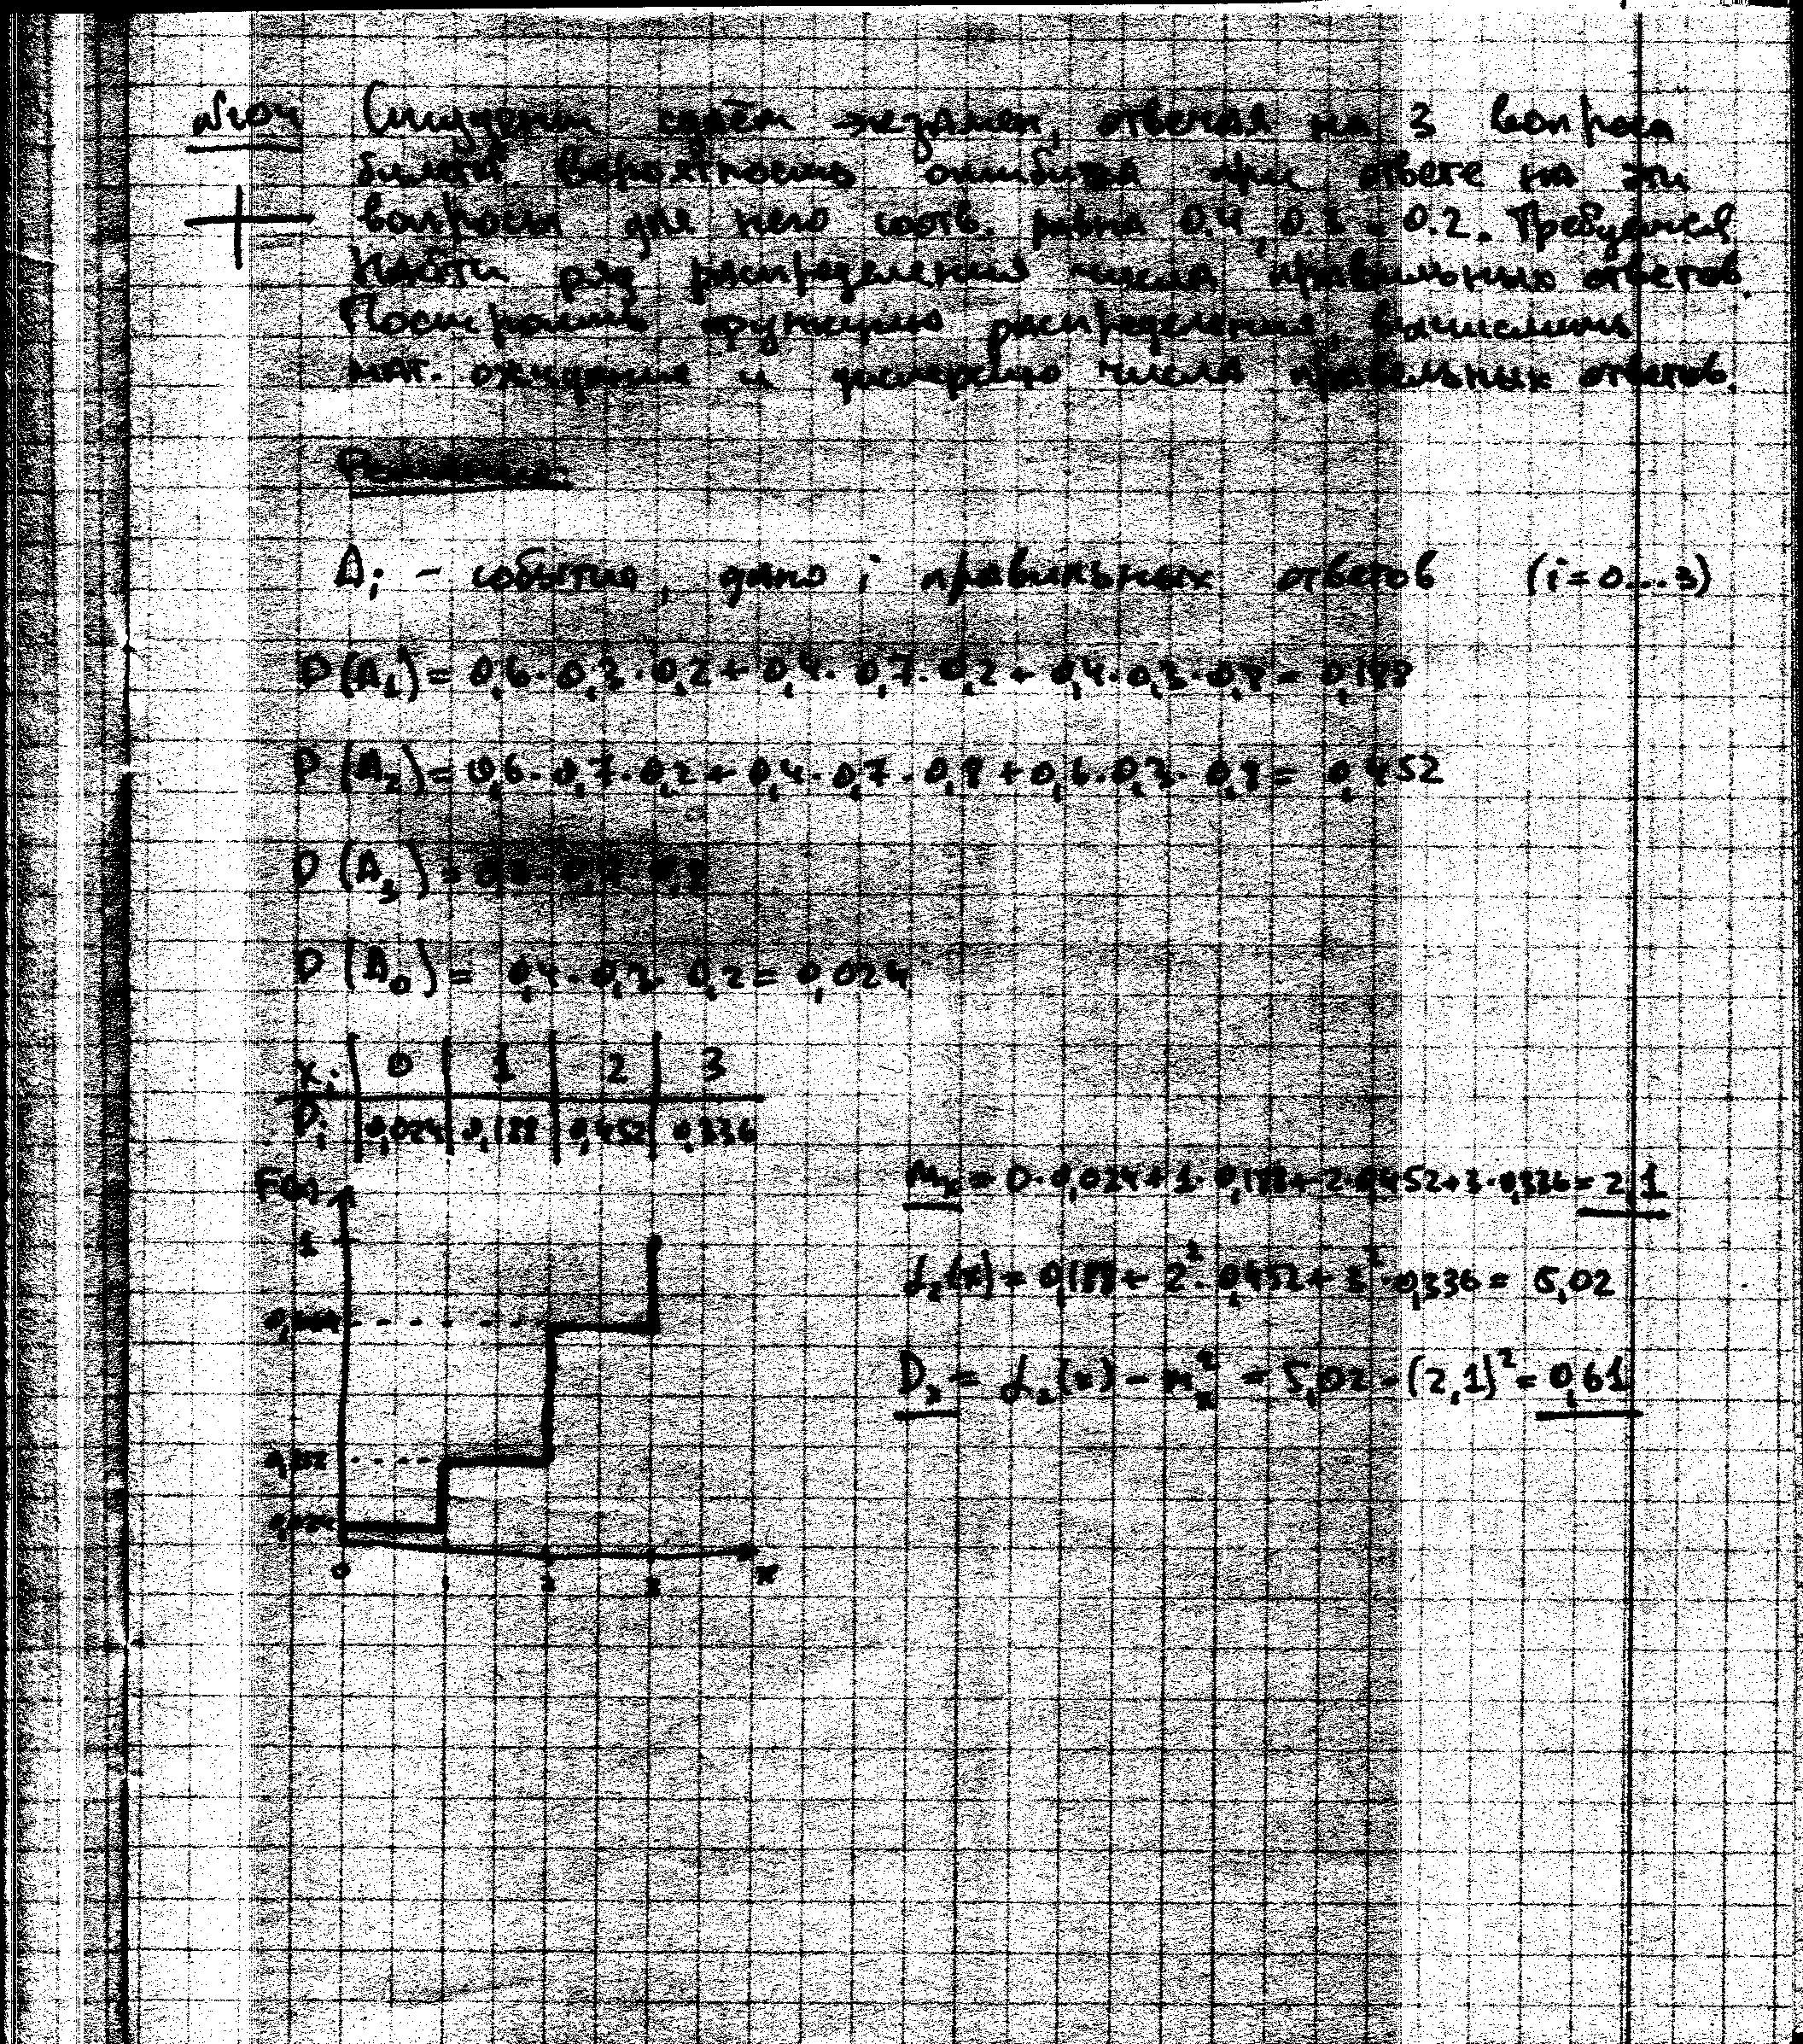 №04 Студент сдаёт экзамен, отвечая на 3 вопроса
билета. Вероятность ошибиться при ответе на эти
вопросы для него соотв. равна 0.4, 0.3 и 0.2. Требуется
найти ряд распределения числа правильных ответов.
Построить функцию распределения, вычислить
мат. ожидание и дисперсию числа правильных ответов.
Решение
Aᵢ - событие, дано i правильных ответов (i=0...3)
P(A₁) = 0,6·0,3·0,2 + 0,4·0,7·0,2 + 0,4·0,3·0,8 = 0,188
P(A₂) = 0,6·0,7·0,2 + 0,4·0,7·0,8 + 0,6·0,3·0,8 = 0,452
P(A₃) =
P(A₀) = 0,4·0,3·0,2 = 0,024
xᵢ 0 1 2 3
Pᵢ 0,024 0,188 0,452 0,336
F(x)
1
0 1 2 3 x
mₓ = 0·0,024 + 1·0,188 + 2·0,452 + 3·0,336 = 2,1
α₂(x) = 0,188 + 2²·0,452 + 3²·0,336 = 5,02
Dₓ = α₂(x) - mₓ² = 5,02 - (2,1)² = 0,61